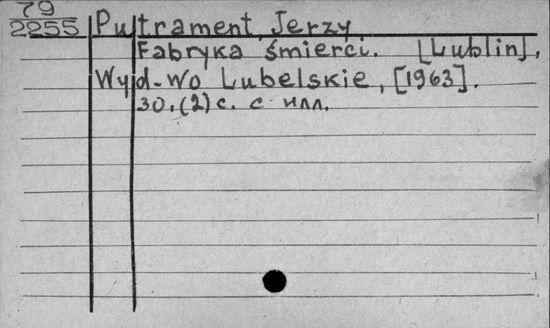 79
2255
Putrament, Jerzy
Fabryka śmierci. [Lublin],
Wyd-wo Lubelskie, [1963].
30,(2) с. с илл.